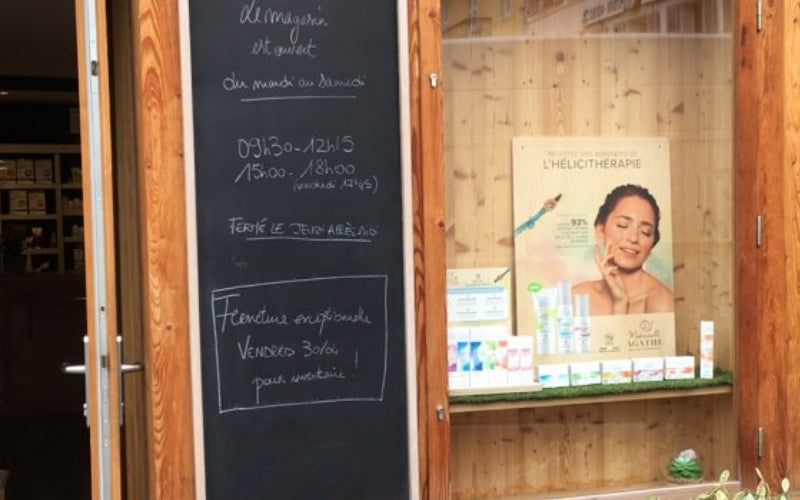 Le magasin
est ouvert
du mardi au Samedi
09h30-12h15
15h00-18h00
(vendredi 17h45)
FERMÉ LE JEUDI APRÈS MIDI
Fermeture exceptionnelle
VENDREDI 30/04
pour inventaire !
PROFITEZ DES BIENFAITS DE
L'HÉLICITHÉRAPIE
93%
Mademoiselle
AGATHE